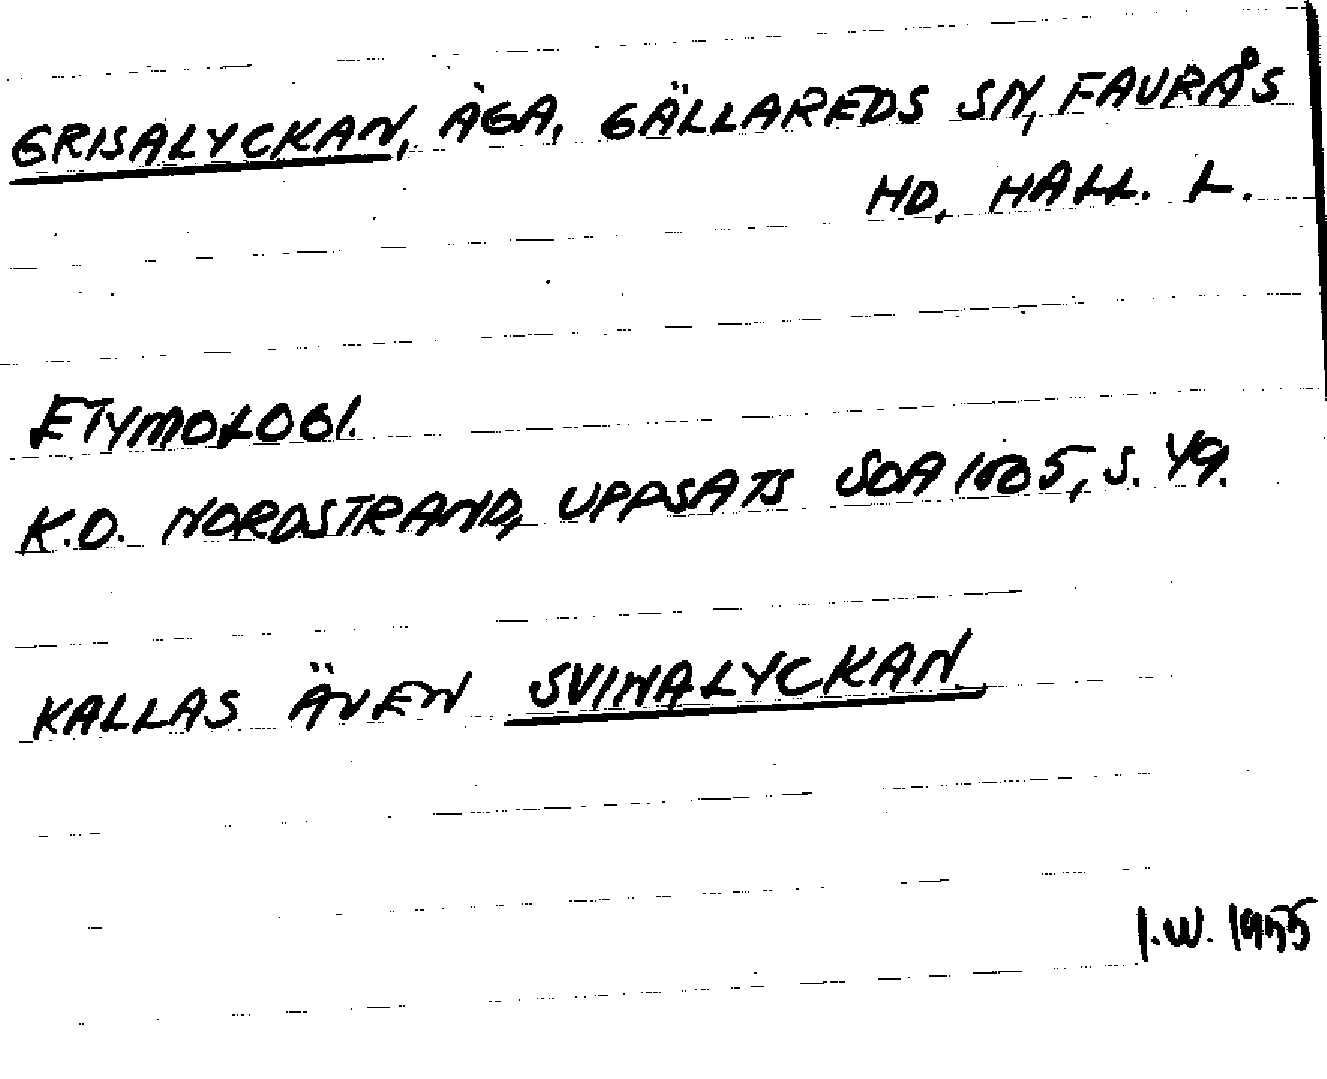 GRISALYCKAN, ÄGA, GÄLLAREDS SN, FAURÅS
HD, HALL. L.
ETYMOLOGI.
K.O. NORDSTRAND, UPPSATS SOA 1605, S. 49.
KALLAS ÄVEN SVINALYCKAN
I.W. 1955